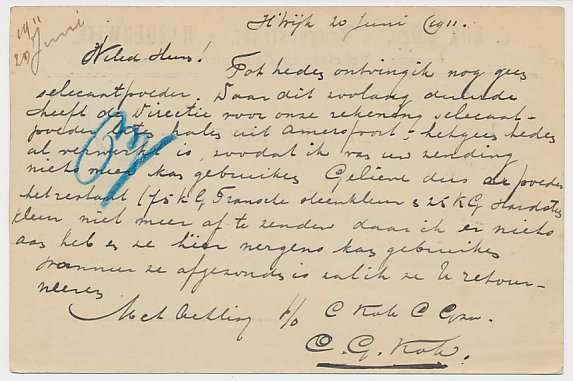 1911
20 Juni
H'wijk 20 Juni 1911.
WelEd. Heer!
Tot heden ontving ik nog geen
selecaatpoeder. Daar dit zoolang duurde
heeft de Directie voor onze rekening selecaat-
poeder laten halen uit Amersfoort, hetgeen heden
al verwerkt is, zoodat ik van uw zending
niets meer kan gebruiken Gelieve dus de poeder
het restant (75 KG Fransche steenkleur & 25 KG Hardsteen
kleur niet meer af te zenden daar ik er niets
aan heb en ze hier nergens kan gebruiken
Wanneer ze afgezonden is zal ik ze U retour-
neeren
Met Achting p/o C Kok C Gzn.
C. G. Kok.